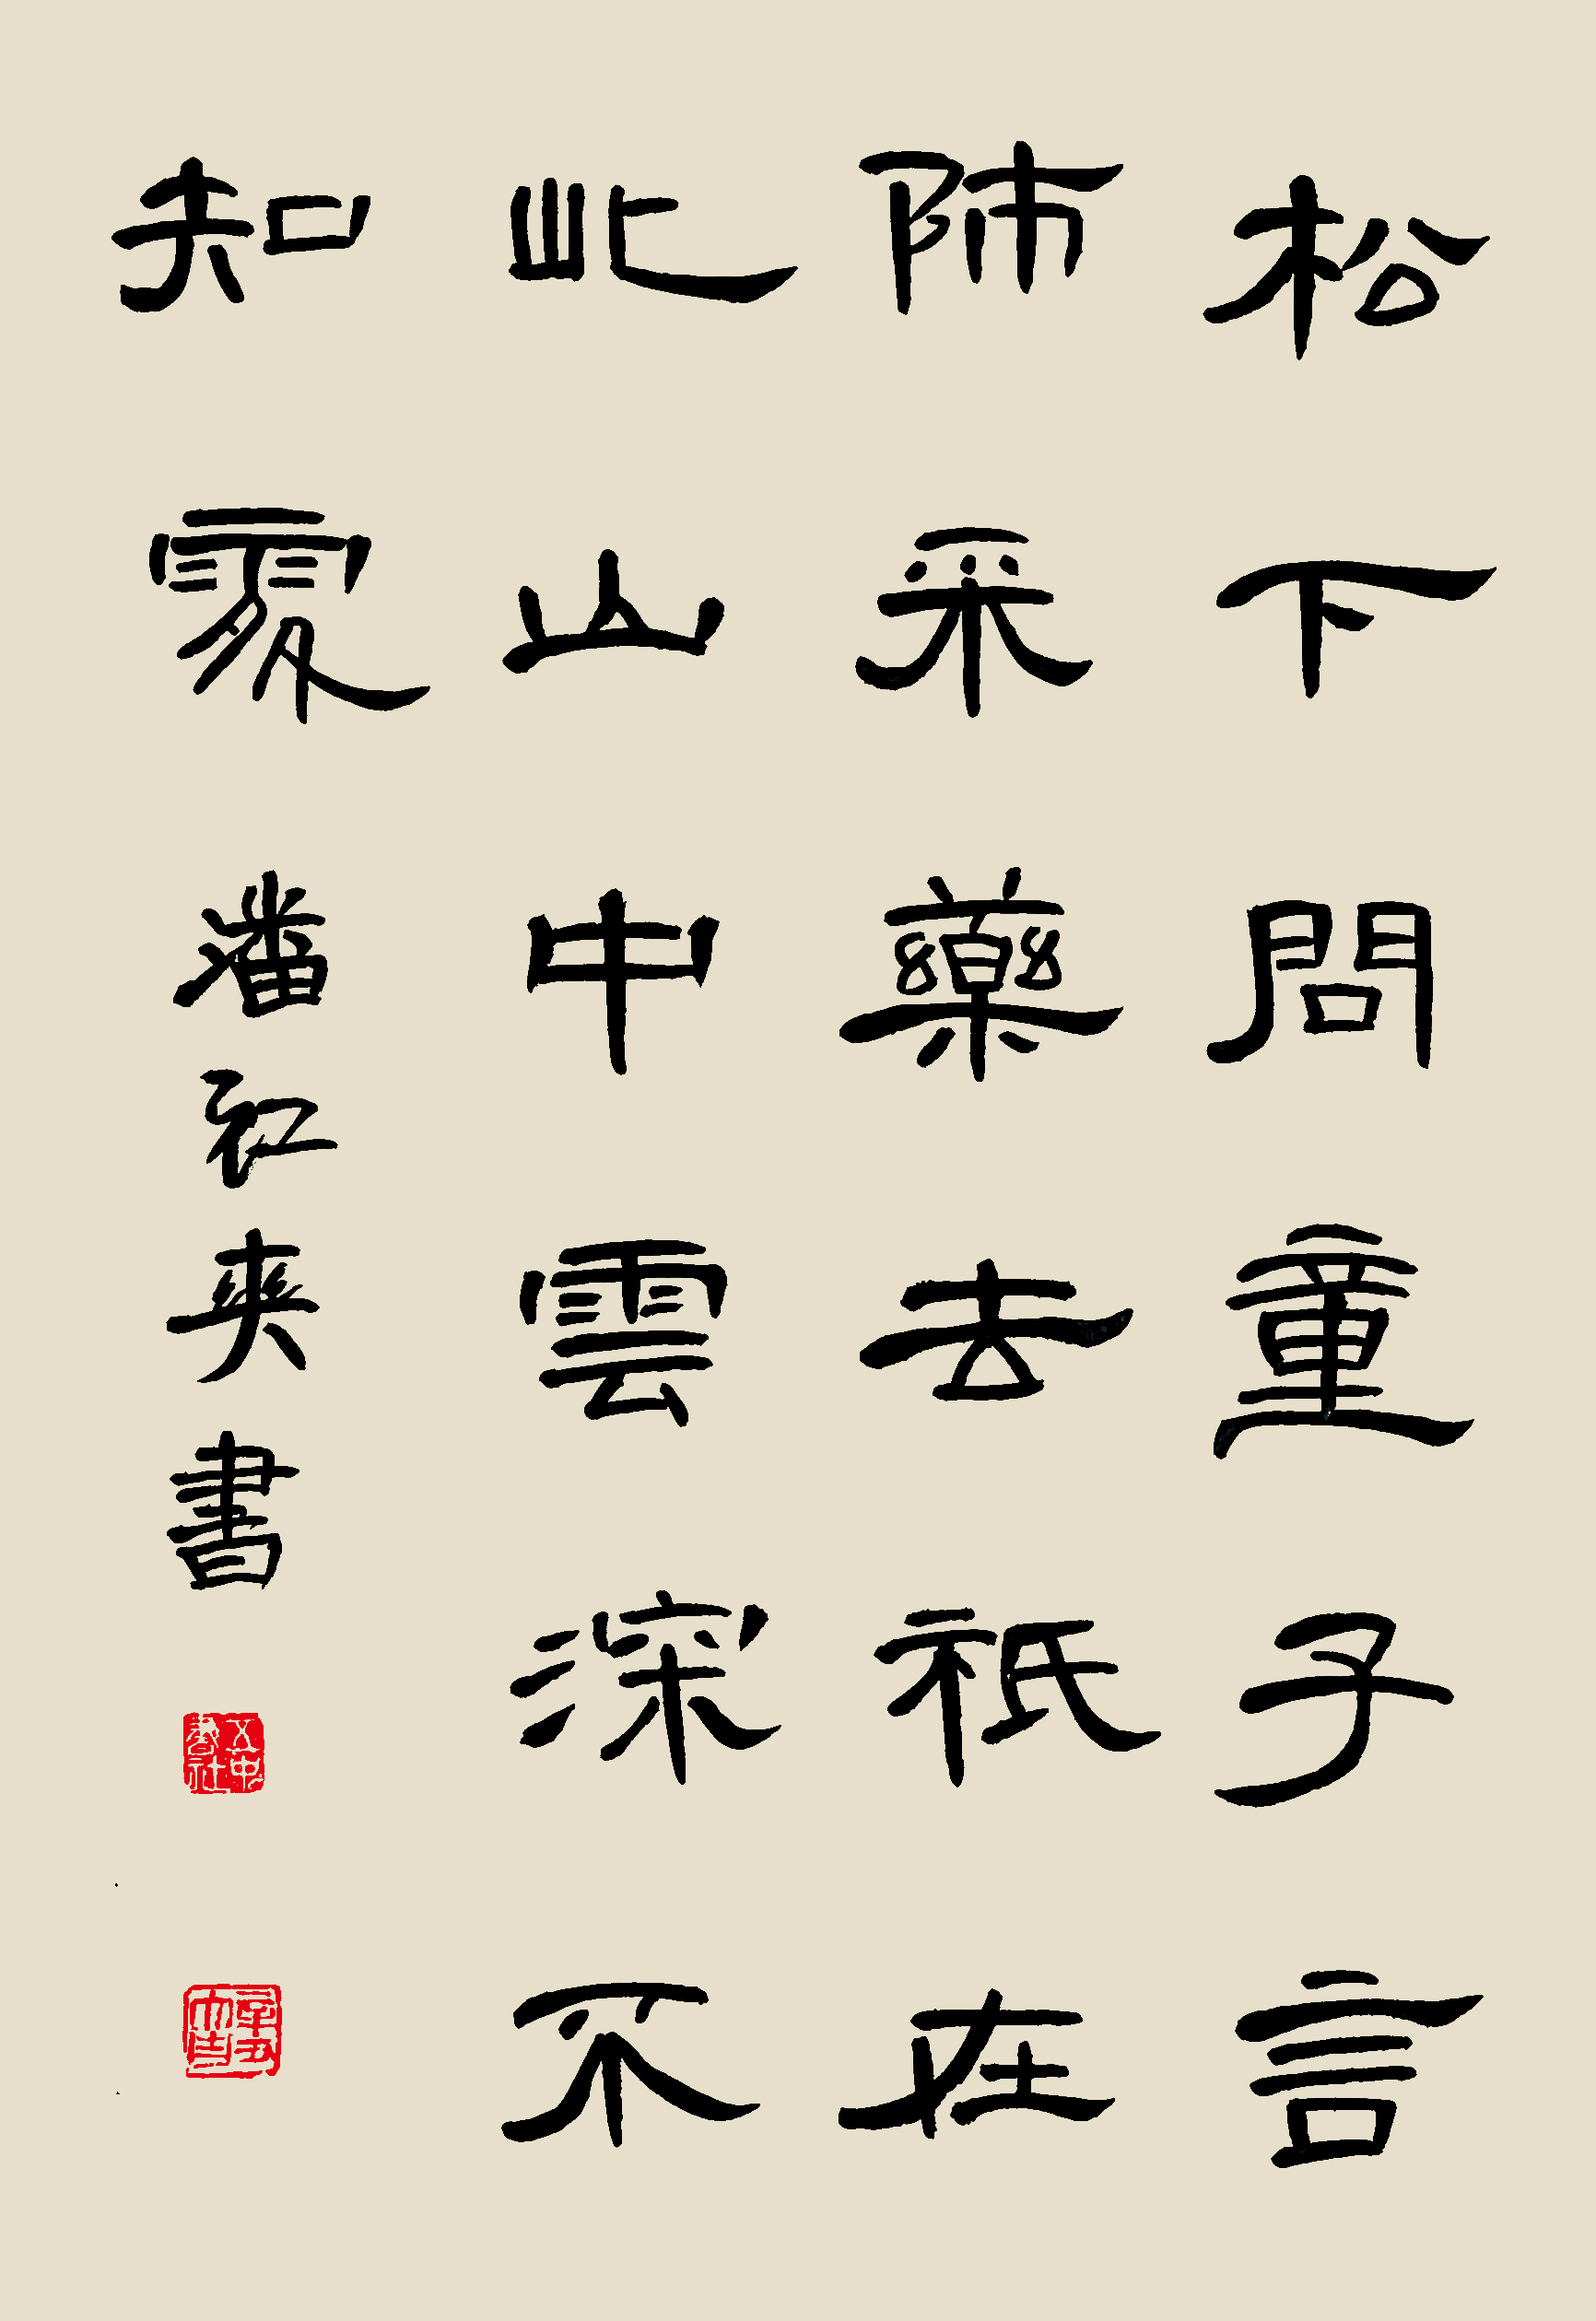 松下問童子言
師采藥去祇在
此山中雲深不
知處 潘紅爽書